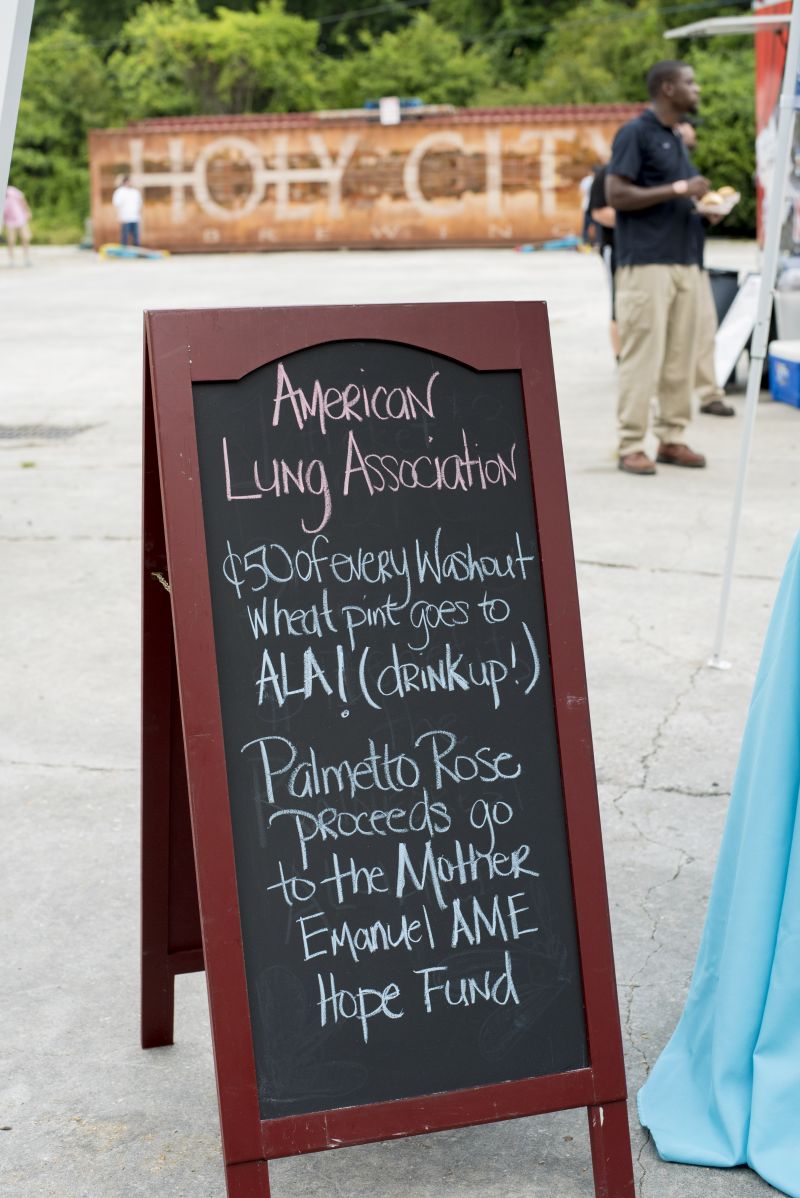 HOLY CITY
BREWING
American
Lung Association
¢50 of every Washout
Wheat pint goes to
ALA! (drink up!)
Palmetto Rose
proceeds go
to the Mother
Emanuel AME
Hope Fund